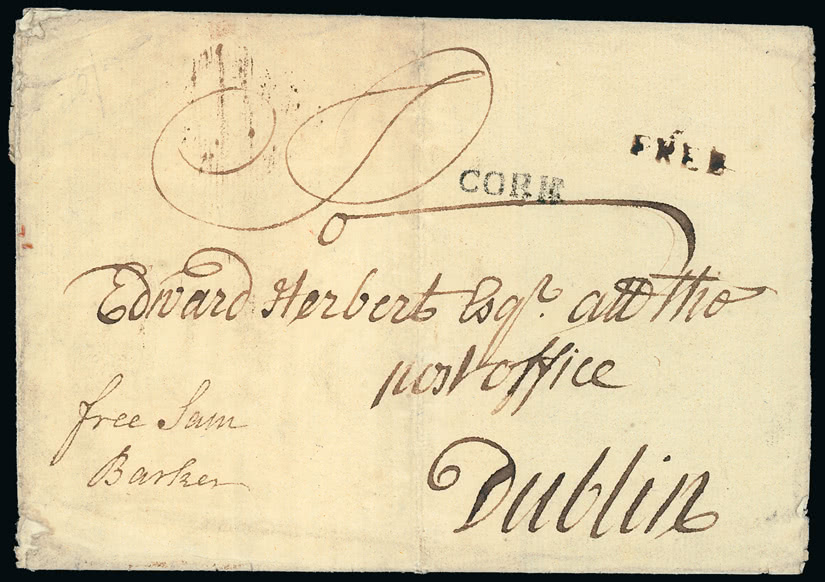 FREE
CORK
To
Edward Herbert Esqr. att the
post office
Dublin
free Sam
Barker